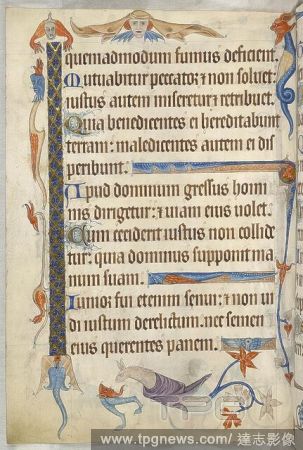 quemadmodum fumus deficient.
Mutuabitur peccator & non soluet:
iustus autem miseretur & retribuet.
Quia benedicentes ei hereditabunt
terram: maledicentes autem ei dis
peribunt.
Apud dominum gressus homi
nis dirigetur: & uiam eius uolet.
Cum ceciderit iustus non collide
tur: quia dominus supponit ma
num suam.
Iunior fui etenim senui: & non ui
di iustum derelictum: nec semen
eius querentes panem.
TPG
www.tpgnews.com/ 達志影像